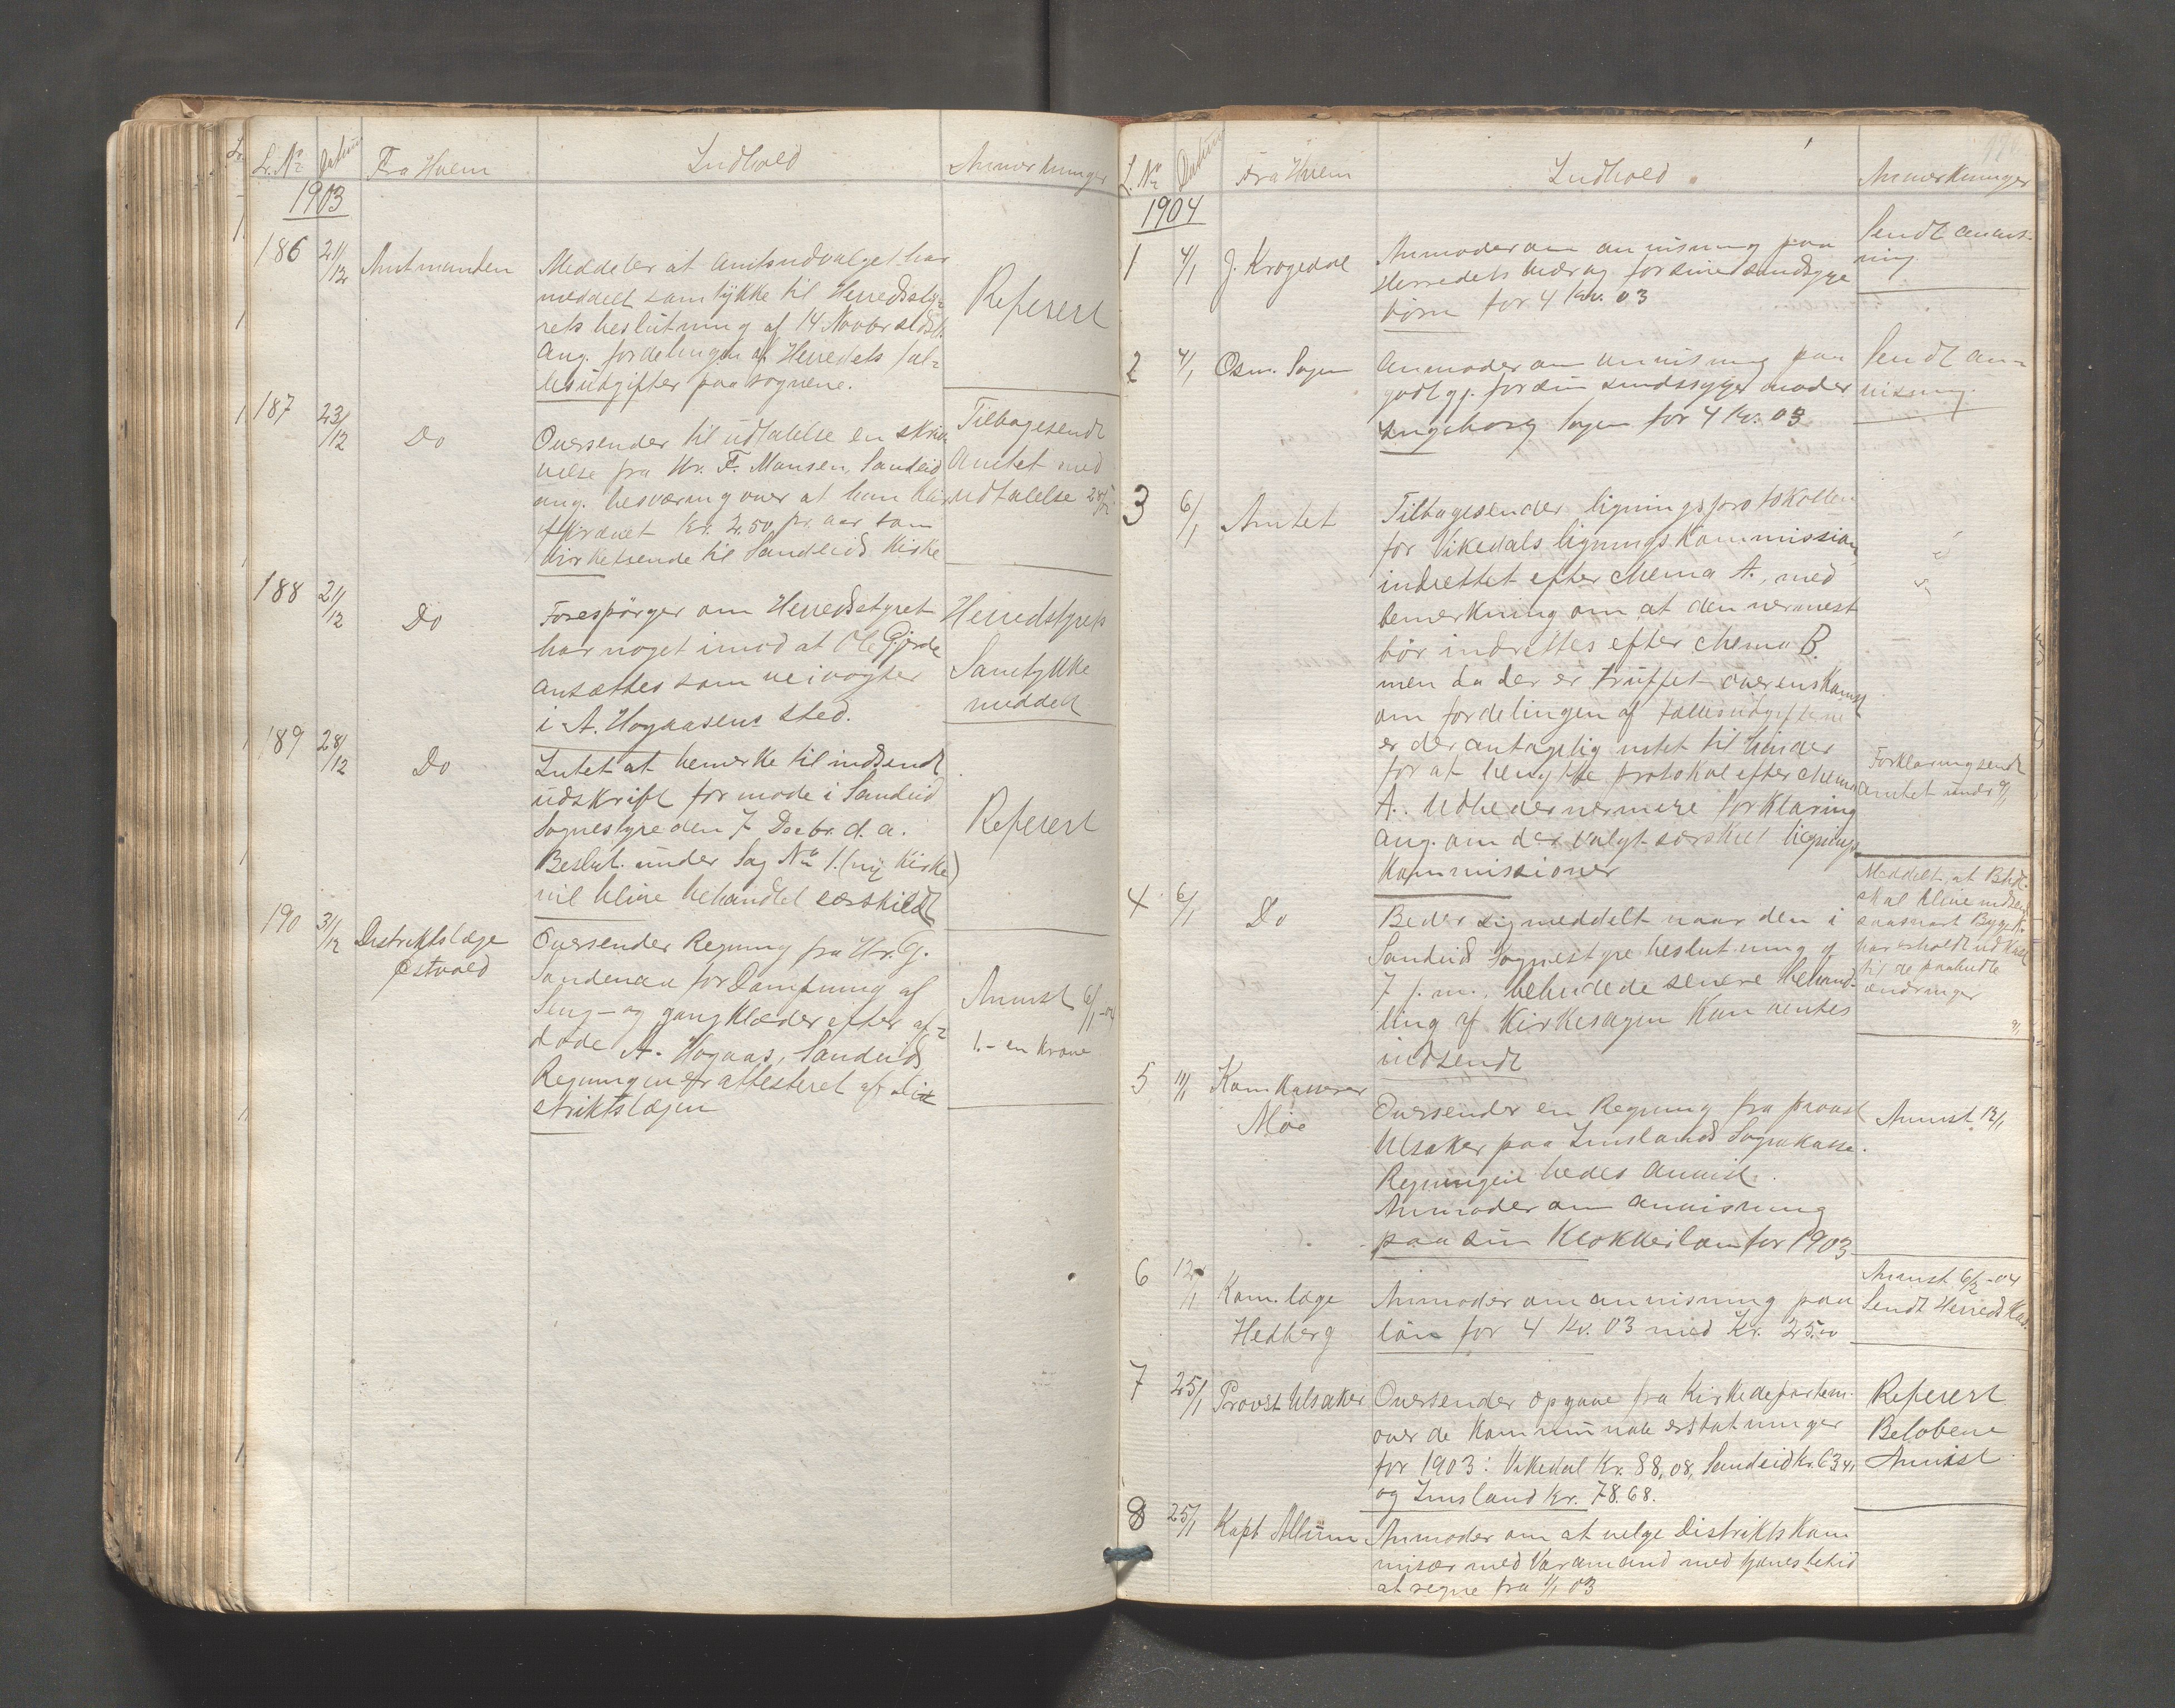 L. No Datum Fra Hvem Indhold Anmerkninger
1903
186 21/12 Amtmanden Meddeler at Amtsudvalget har
meddelt samtykke til Herredssty-
rets beslutning af 14 Novbr sidstl.
ang. fordelingen af Herredets fæl-
lesudgifter paa sognene.
Referert
187 23/12 Do Oversender til udtalelse en skri-
velse fra Hr. F. Monsen, Sandeid
ang. besværing over at han blir
afkrævet kr. 2.50 pr. aar som
kirketiende til Sandeids Kirke
Tilbagesendt
Amtet med
udtalelse
188 21/12 Do Forespörger om Herredsstyret
har noget imod at Ole Gjerde
ansættes som veivogter
i A. Hogaasens sted.
Herredstyrets
Samtykke
meddelt
189 28/12 Do Intet at bemerke til indsendt
udskrift for mode i Sandeid
Sognestyre den 7 Decbr. d. a.
Beslut. under Sag No 1. (ny Kirke)
vil blive behandlet særskildt
Referert
190 31/12 Distriktslæge
Østvold
Oversender Regning fra Hr. G.
Sandenaa for Dampning af
Seng- og gangklæder efter af-
døde A. Hogaas, Sandeid
Regningen er attesteret af Di-
striktslægen
Anvist 6/1-04
1.- en Krone
L. No Datum Fra Hvem Indhold Anmerkninger
1904
1 4/1 J. Krogedal Anmoder om anvisning paa
Herredets bidrag for sine sindsyge
börn for 4 kv. 03
Sendt anvis-
ning
2 4/1 Osm. Sagen Anmoder om anvisning paa
godtgj. for sin sindssyge moder
Ingeborg Sagen for 4 Kv. 03
Sendt an-
visning.
3 6/1 Amtet Tilbagesender ligningsprotokollen
for Vikedals ligningskommission,
indrettet efter chema A., med
bemerkning om at den nærmest
bör indrettes efter chema B.
men da der er truffet overenskomst
om fordelingen af fællesudgifterne
er der antagelig intet til hinder
for at benytte protokol efter chema
A. Udbeder nærmere forklaring
ang. om der valgt særskilt lignings
kommissioner
Forklaring sendt
Amtet
4 6/1 Do Beder sig meddelt naar den i
Sandeids Sognestyre beslutning af
7 f. m., bebudede senere behand-
ling af Kirkesagen kan ventes
indsendt
Meddelt, at Besl.
skal blive indsen
saasnart Bygek.
har erholdt udkast
til de paabudte
ændringer
5 11/1 Kom Kasserer
Moe
Oversender en Regning fra provst
Ulsaker paa Imslands Sognekasse.
Regningen bedes anvist.
Anmoder om anvisning
paa sin Klokkerlön for 1903
Anvist 12/1
6 12/1 Kom. læge
Hedberg
Anmoder om anvisning paa
lön for 4 Kv. 03 med Kr. 25.00
Anvist 6/2-04
Sendt Herreds Kas.
7 25/1 Provst Ulsaker Oversender opgave fra Kirkedepartem.
over de kommunale erstatninger
for 1903: Vikedal Kr. 88,08, Sandeid kr. 63,41
og Imsland kr. 78.68.
Referert
Beløbene
Anvist
8 25/1 Kapt Album Anmoder om at velge Distrikts Kom
misær med Varamand med tjenestetid
at regne fra 1/1 03